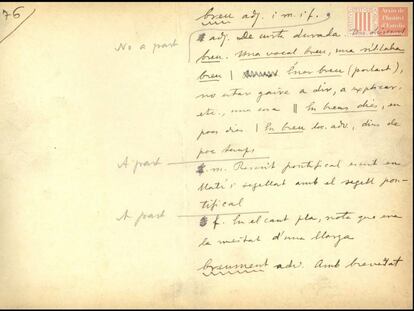 76
breu adj. i m. i f.
Arxiu de l'Institut d'Estudis Catalans
adj. De curta durada.
No a part
breu. Una vocal breu, una síl·laba
breu | Ésser breu (parlant),
no estar gaire a dir, a explicar,
etc., una cosa || En breus dies, en
pocs dies | En breu loc. adv., dins de
poc temps
A part
m. Rescrit pontifical escrit en
llatí i segellat amb el segell pon-
tifical
A part
f. En el cant pla, nota que era
la meitat d'una llarga
breument adv. Amb brevedat